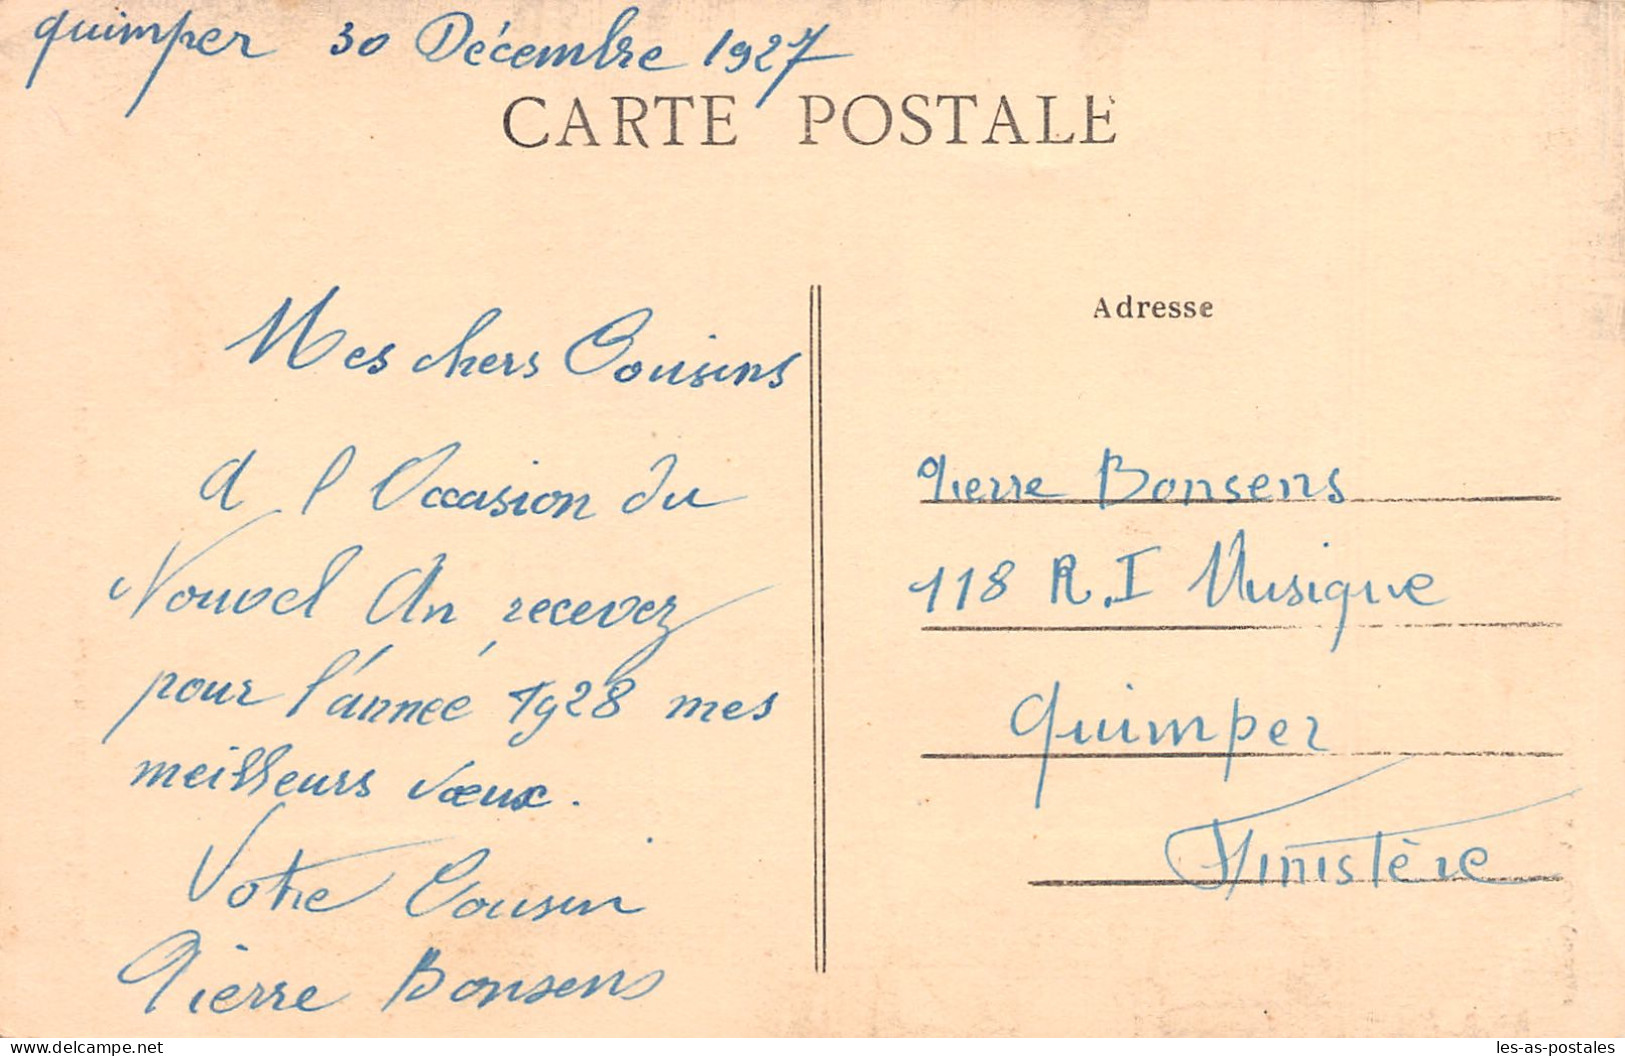 Quimper 30 Décembre 1927
CARTE POSTALE
Mes chers Cousins
A l Occasion du
Nouvel An, recevez
pour l'année 1928 mes
meilleurs vœux.
Votre Cousin
Pierre Bonsens
Adresse
Pierre Bonsens
118 R.I Musique
Quimper
Finistère
www.delcampe.net
les-as-postales